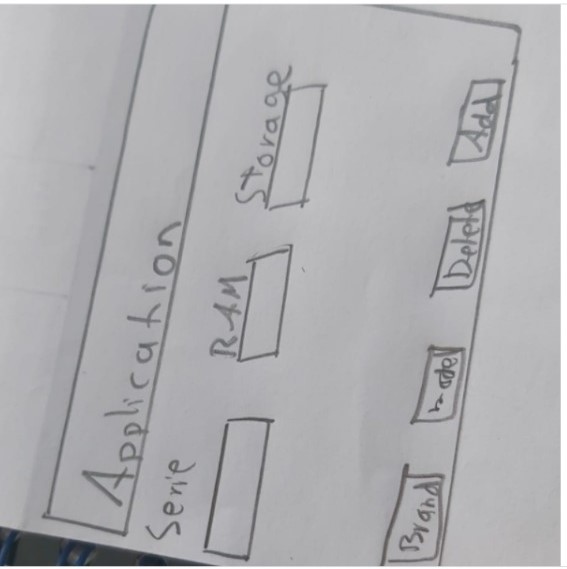 Application
Serie RAM Storage
Brand Model Delete Add